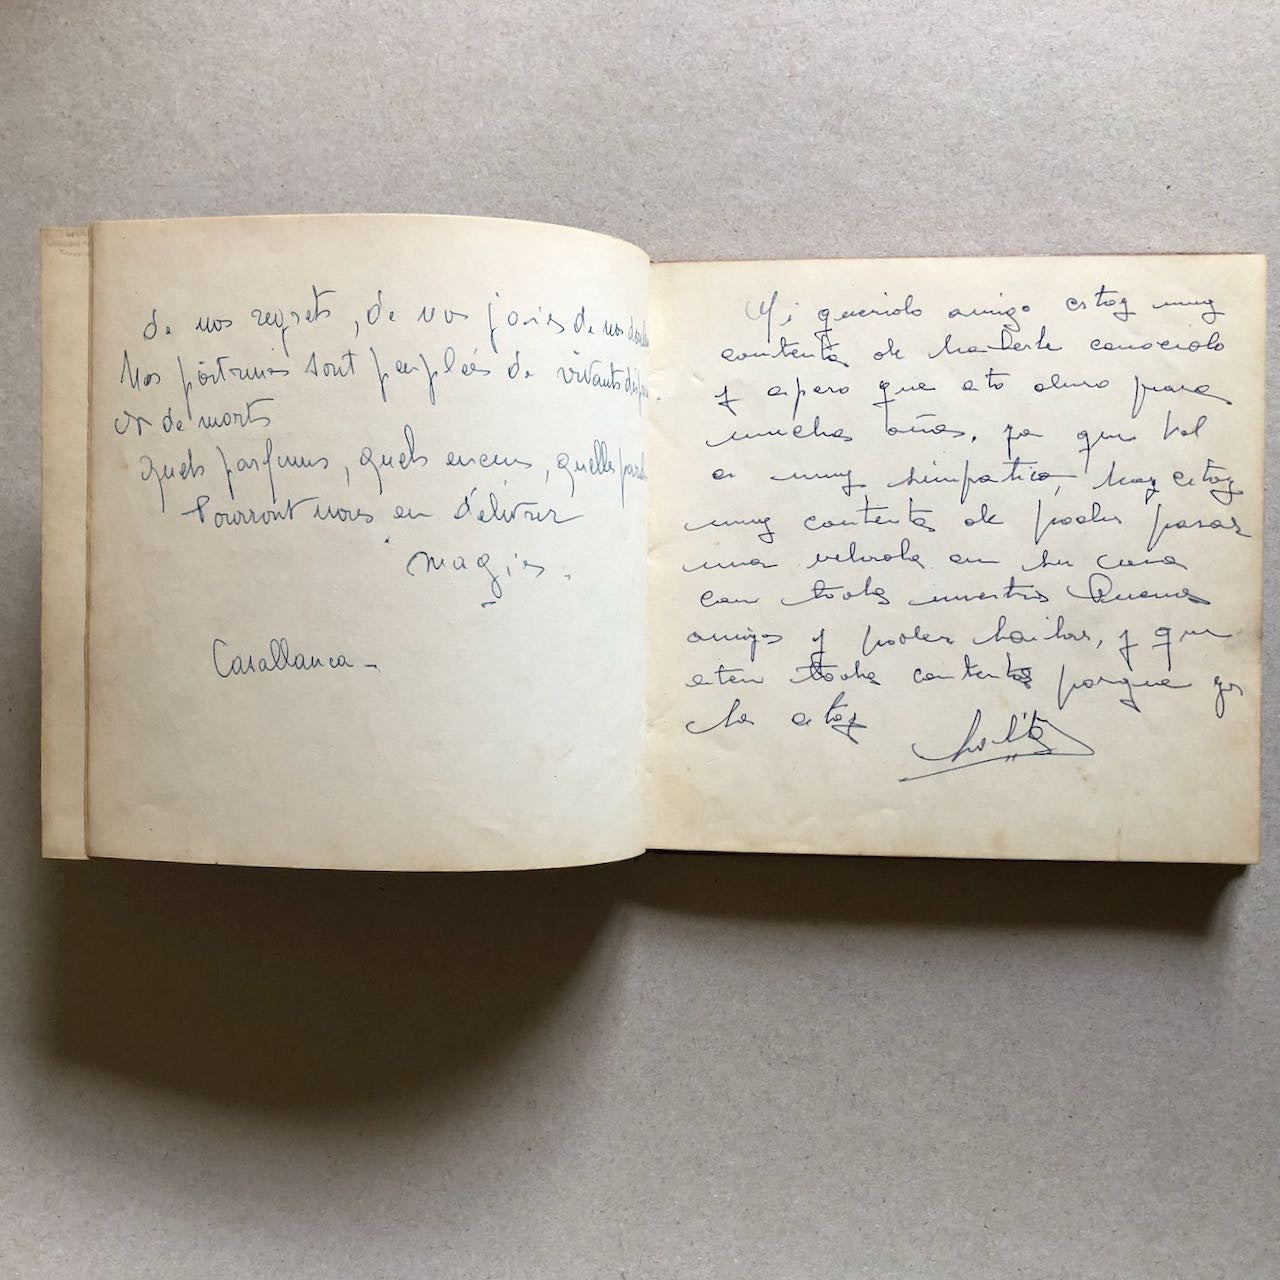 de nos regrets, de nos joies de nos
Nos poitrines sont peuplées de vivants
et de morts
quels parfums, quels encens, quelles
Pourront nous en délivrer
magies.
Casablanca -
Mi querido amigo estoy muy
contenta de haberle conocido
y espero que esto dure para
muchos años, ya que Vd
es muy simpatico, hoy estoy
muy contenta de poder pasar
una velada en su casa
con todos nuestros Buenos
amigos y poder bailar, y que
esten todos contentos porque yo
lo estoy Lolita